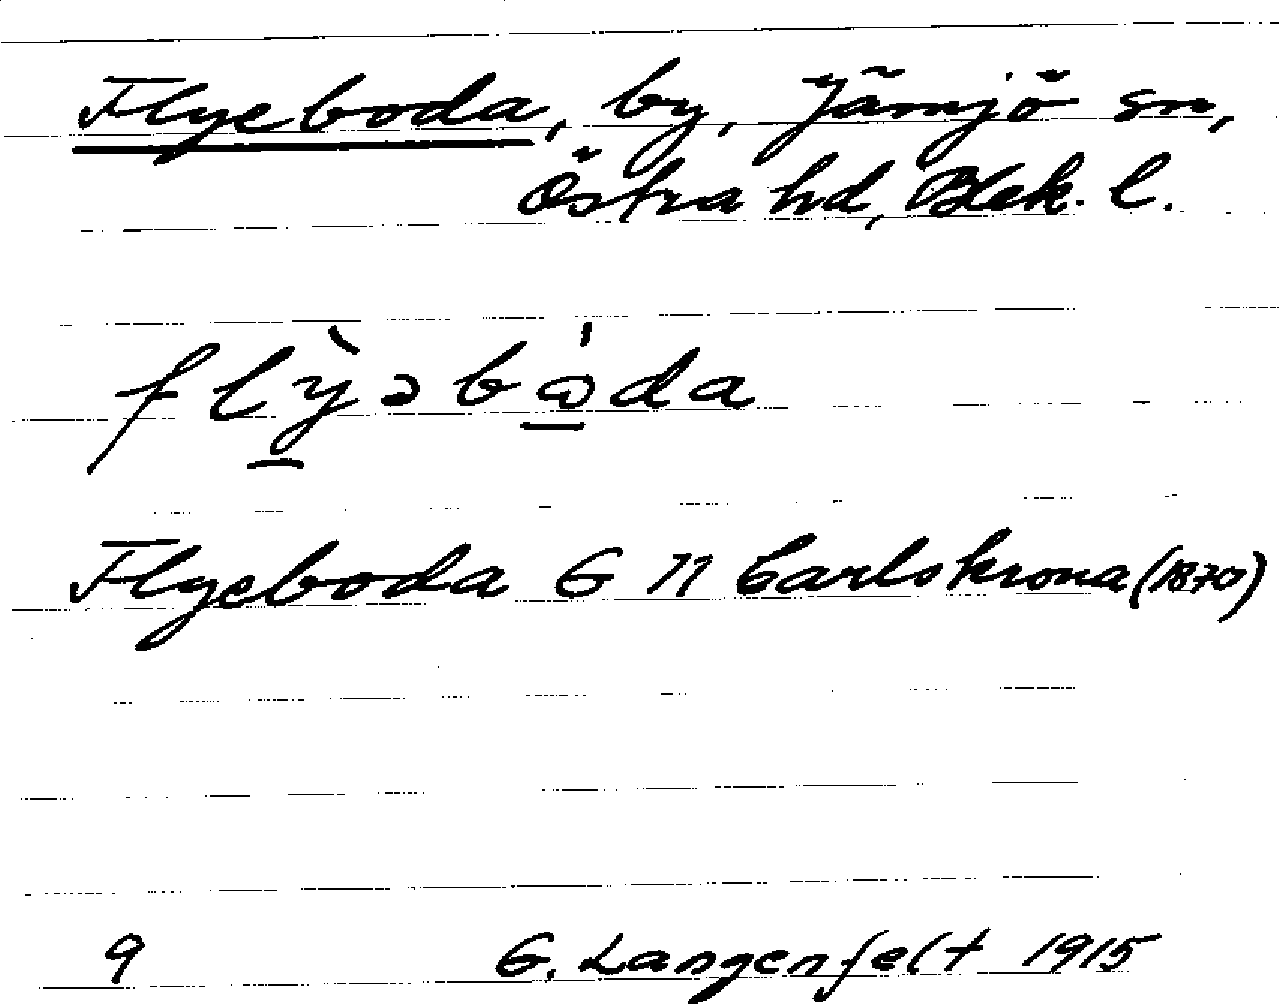 Flyeboda, by, Jämjö sn,
Östra hd, Blek. l.
flỳəbω̇da
Flyeboda G 11 Carlskrona (1870)
9 G. Langenfelt 1915